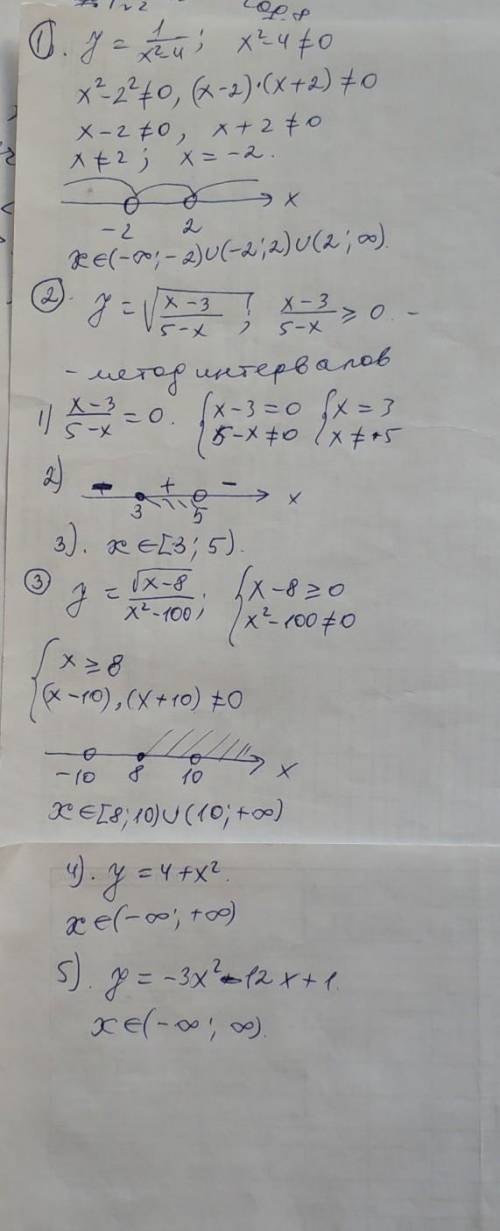 ①. y = 1/(x²-4); x²-4≠0
x²-2²≠0, (x-2)·(x+2)≠0
x-2≠0, x+2≠0
x≠2; x=-2.
-2 2 x
x∈(-∞;-2)∪(-2;2)∪(2;∞).
②. y = √((x-3)/(5-x)); (x-3)/(5-x) ≥ 0. -
- метод интервалов
1) (x-3)/(5-x) = 0. { x-3=0 { x=3
5-x≠0 x≠5
2) - + -
3 5 x
3). x∈[3;5).
③ y = √(x-8)/(x²-100); { x-8≥0
x²-100≠0
{ x≥8
(x-10),(x+10)≠0
-10 8 10 x
x∈[8;10)∪(10;+∞)
4). y = 4+x².
x∈(-∞;+∞)
5). y = -3x²-12x+1.
x∈(-∞;∞).